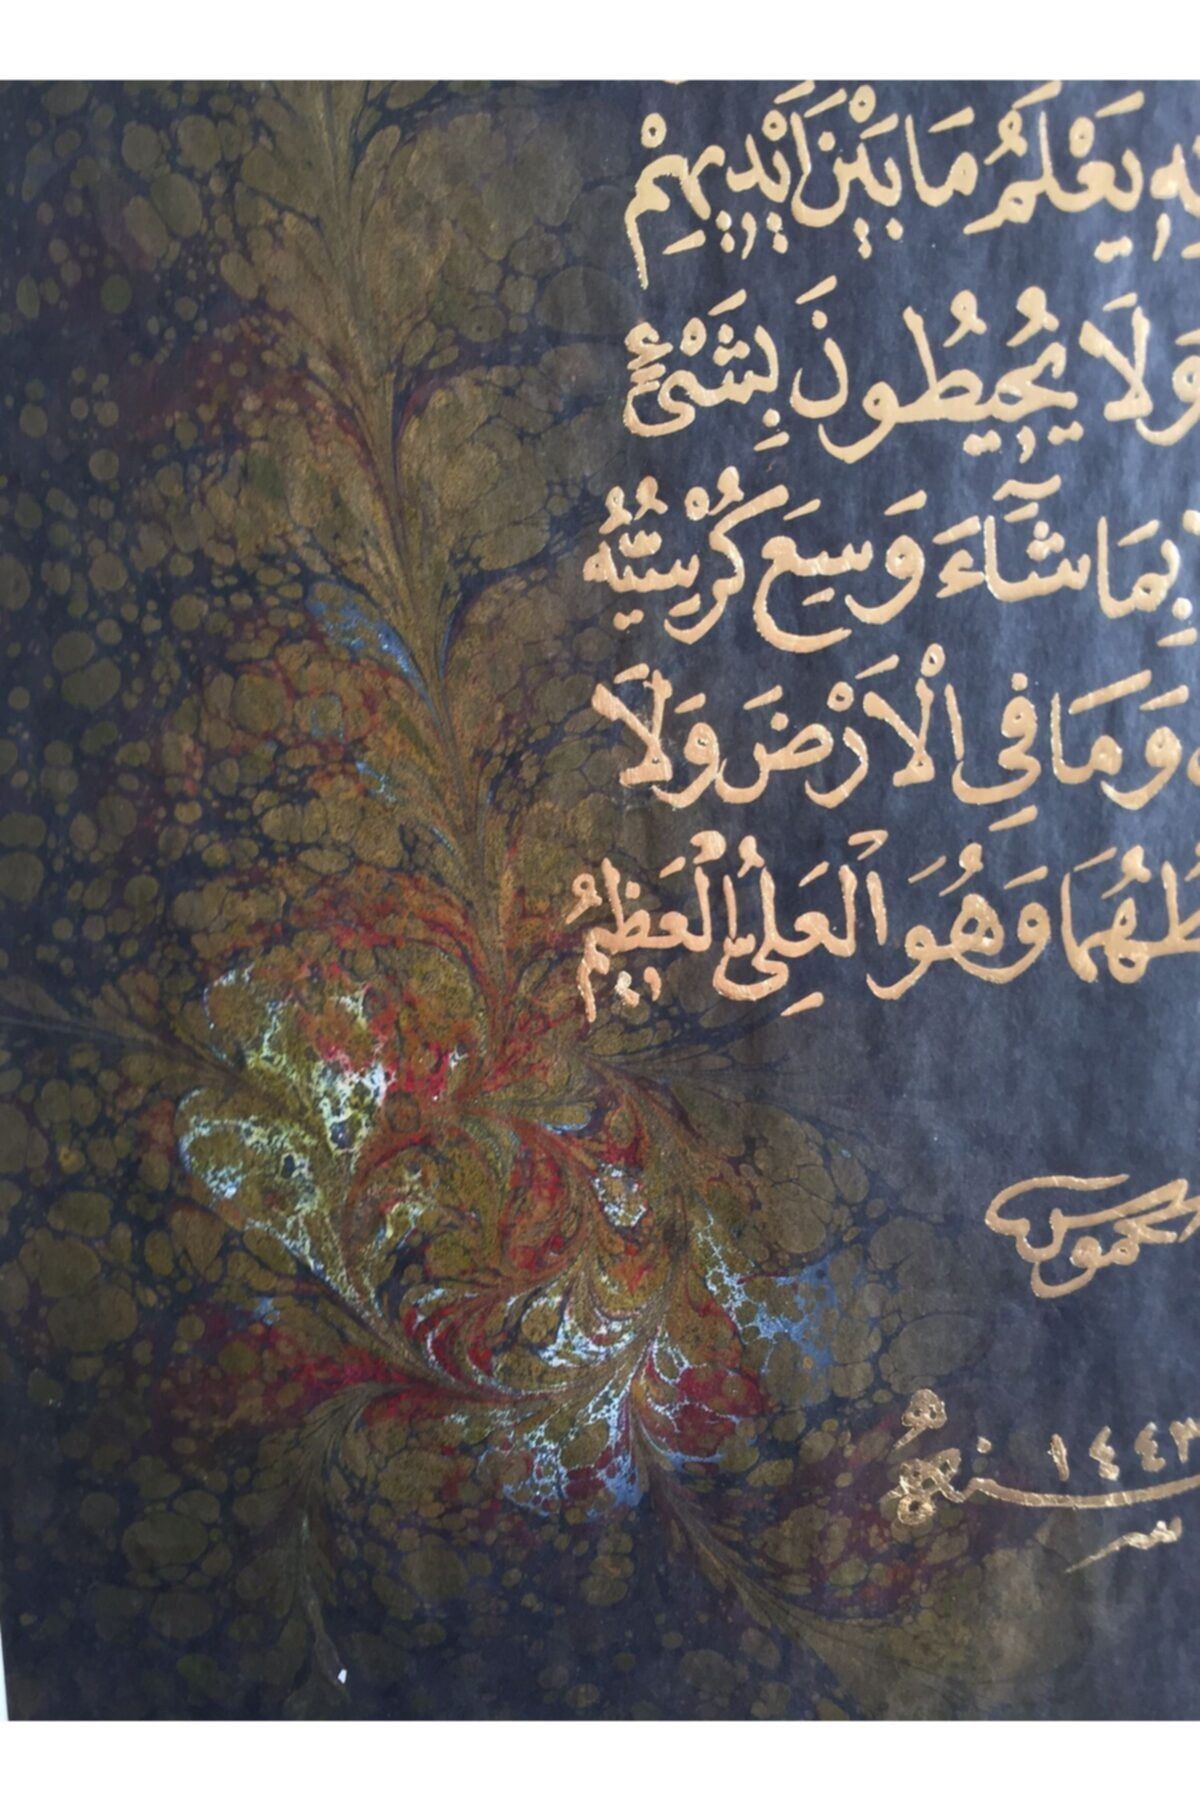 يَعْلَمُ مَا بَيْنَ اَيْدِيهِمْ
وَلَا يُحِيطُونَ بِشَىْءٍ
بِمَا شَآءَ وَسِعَ كُرْسِيُّهُ
وَمَا فِي الْاَرْضَ وَلَا
وَهُوَ الْعَلِيُّ الْعَظِيمُ
سنه ١٤٤٣